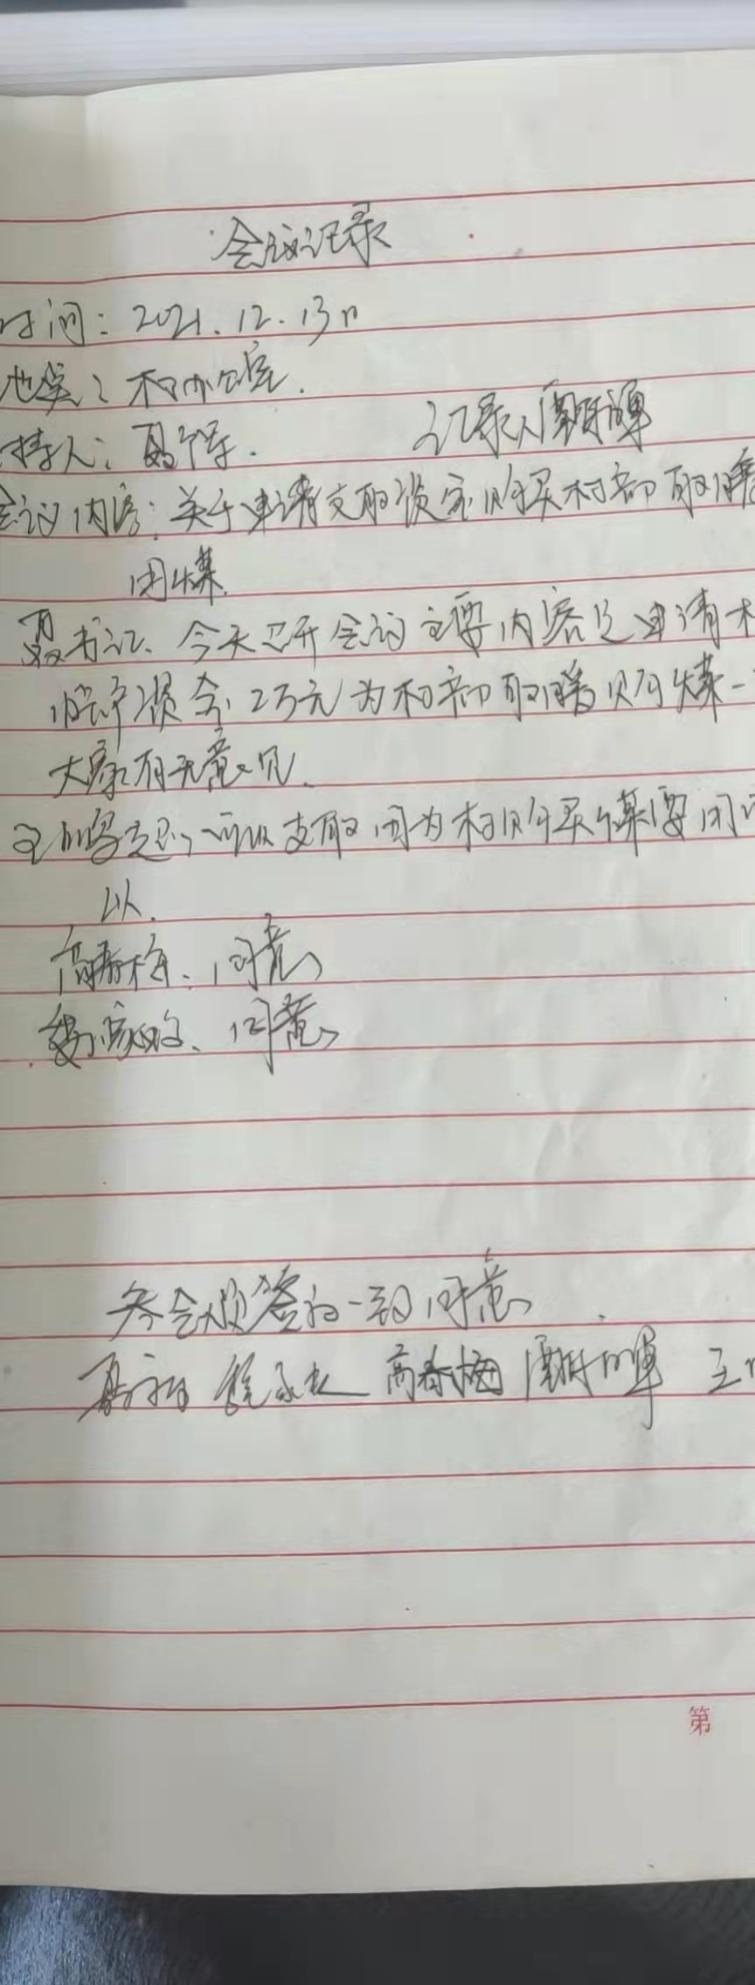 会议记录
时间：2021.12.13日
地点：村办公室.
持人：聂 记录人
会议内容：关于申请支取资金购买村部取暖
用煤.
聂书记、今天召开会议主要内容是申请村
临时资金2万元为村部取暖购煤一
大家有无意见.
可以支取因为村购买煤要用
以.
高春梅、同意
同意
参会人员签名一致同意
聂 高春梅 王
第